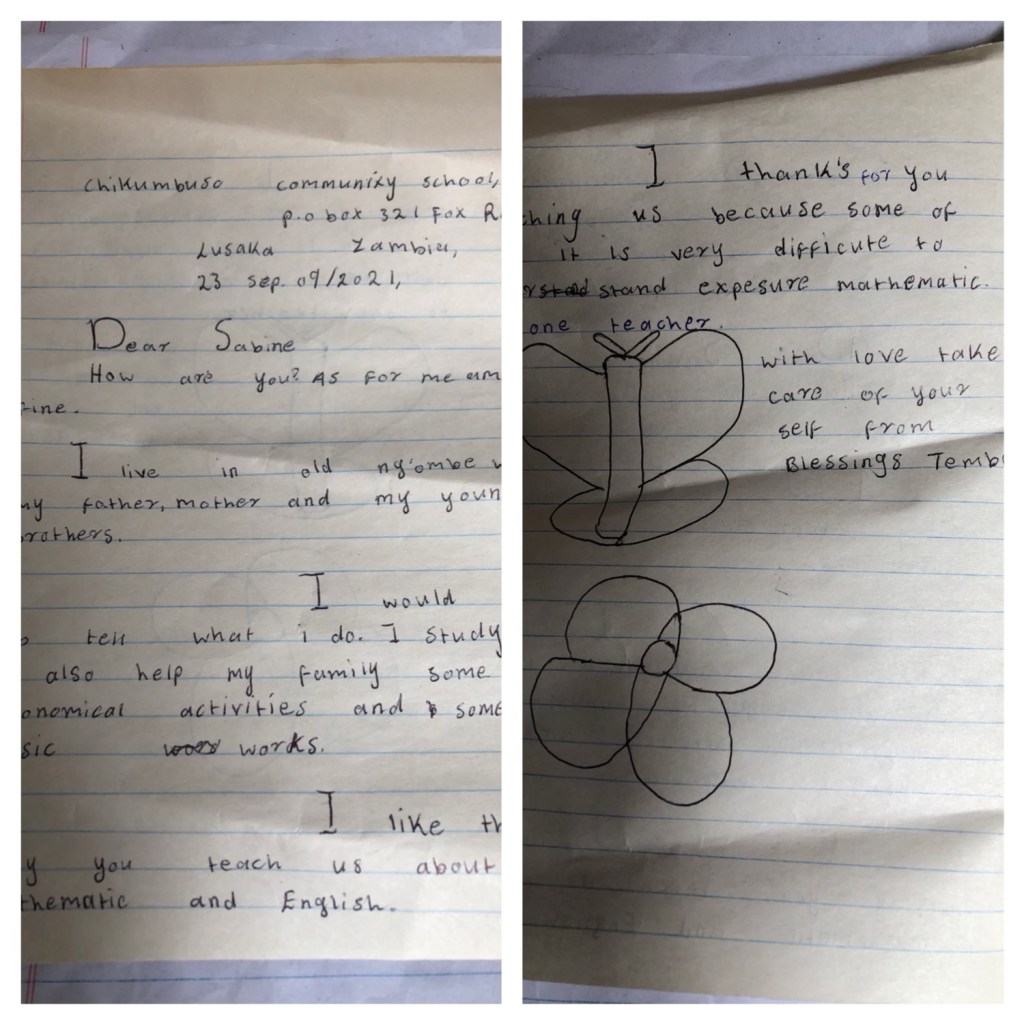 Chikumbuso community school,
p.o box 321 Fox R
Lusaka Zambia,
23 sep. 09/2021,
Dear Sabine
How are you? As For me am
ine.
I live in old ng'ombe w
y father, mother and my youn
rothers.
I would
o tell what i do. I study
also help my family some
onomical activities and some
sic works.
I like th
y you teach us about
thematic and English.
I thank's for you
ching us because some of
it is very difficute to
stand expesure mathematic.
one teacher.
with love take
care of your
self from
Blessings Temb